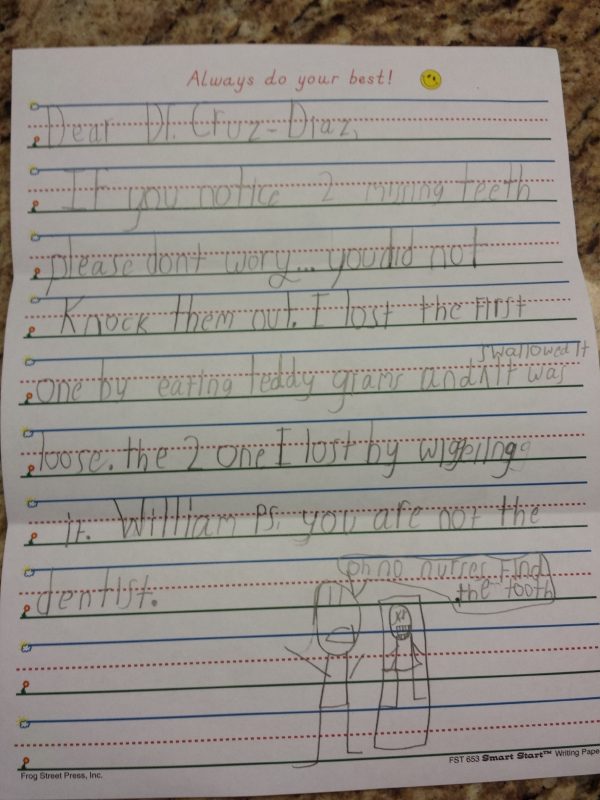 Always do your best!
Dear Dr. Cruz-Diaz,
If you notice 2 missing teeth
please dont wory... you did not
Knock them out. I lost the First
swallowed it
one by eating teddy grams and ʌ It was
loose. the 2 one I lost by wiggling
it. William Ps. you are not the
dentist.
oh no nurses Find
the tooth
FST 653 Smart Start™ Writing Pape
Frog Street Press, Inc.